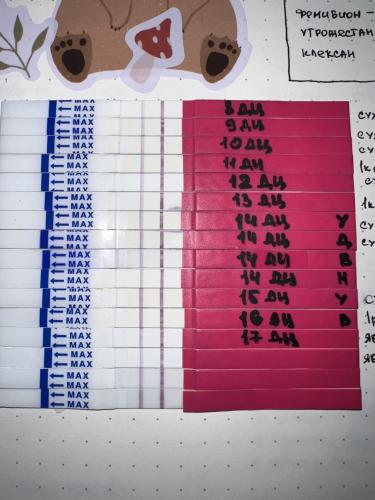 ФЕМИБИОН –
УТРОЖЕСТАН
КЛЕКСАН
MAX 8 ДЦ
← MAX 9 ДЦ
← MAX 10 ДЦ
← MAX 11 ДЦ
MAX 12 ДЦ
← MAX 13 ДЦ
← MAX 14 ДЦ У
← MAX 14 ДЦ Д
← MAX 14 ДЦ В
← MAX 14 ДЦ Н
← MAX 15 ДЦ У
← MAX 16 ДЦ В
← MAX 17 ДЦ
← MAX
← MAX
← MAX
← MAX